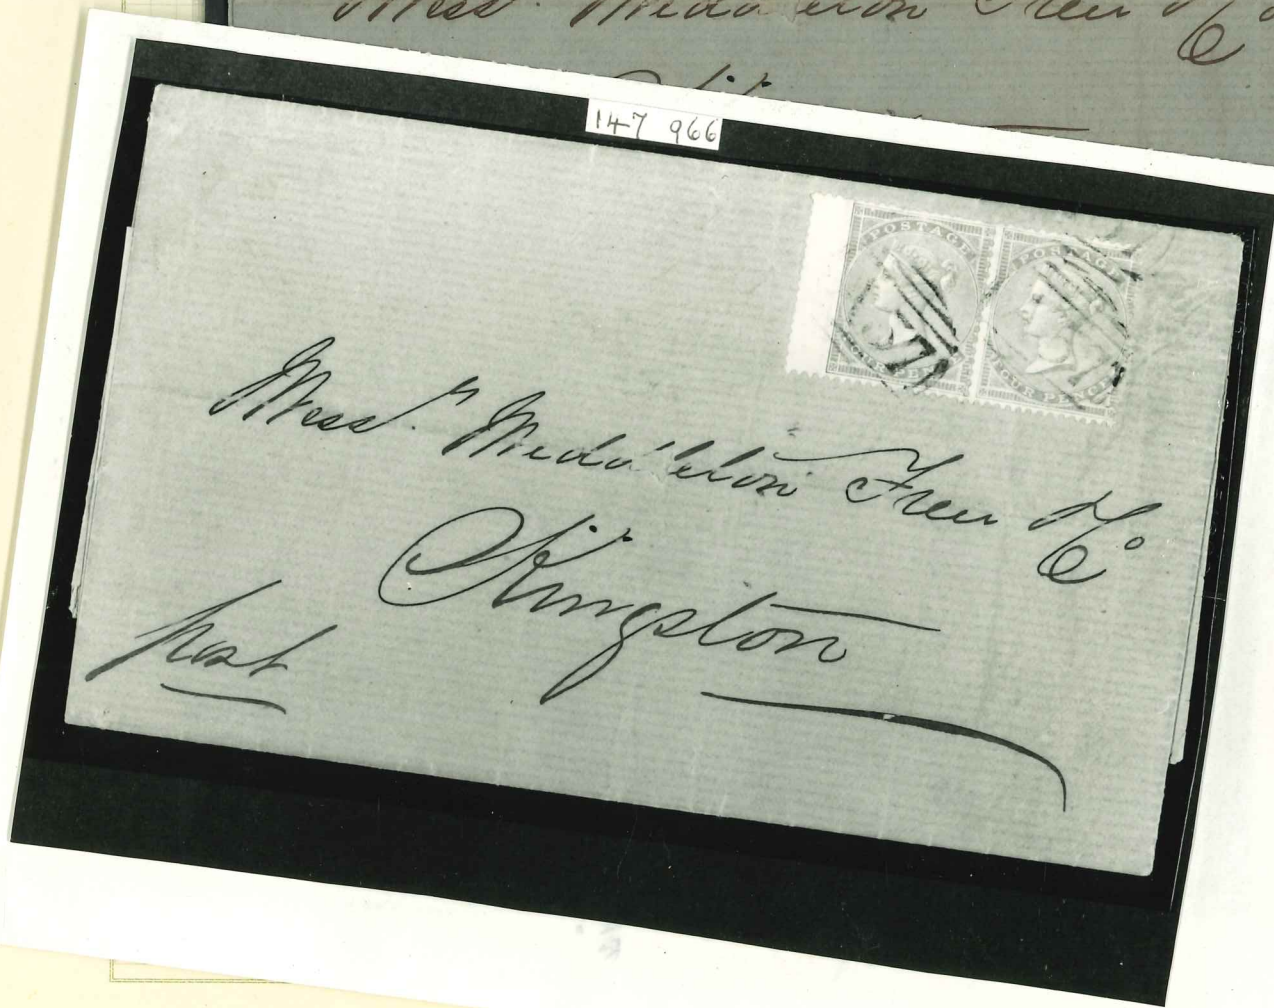 Mess.rs Middleton Frew & Co
147 966
POSTAGE
POSTAGE
FOUR PENCE
Mess.rs Middleton Frew & Co
Kingston
post